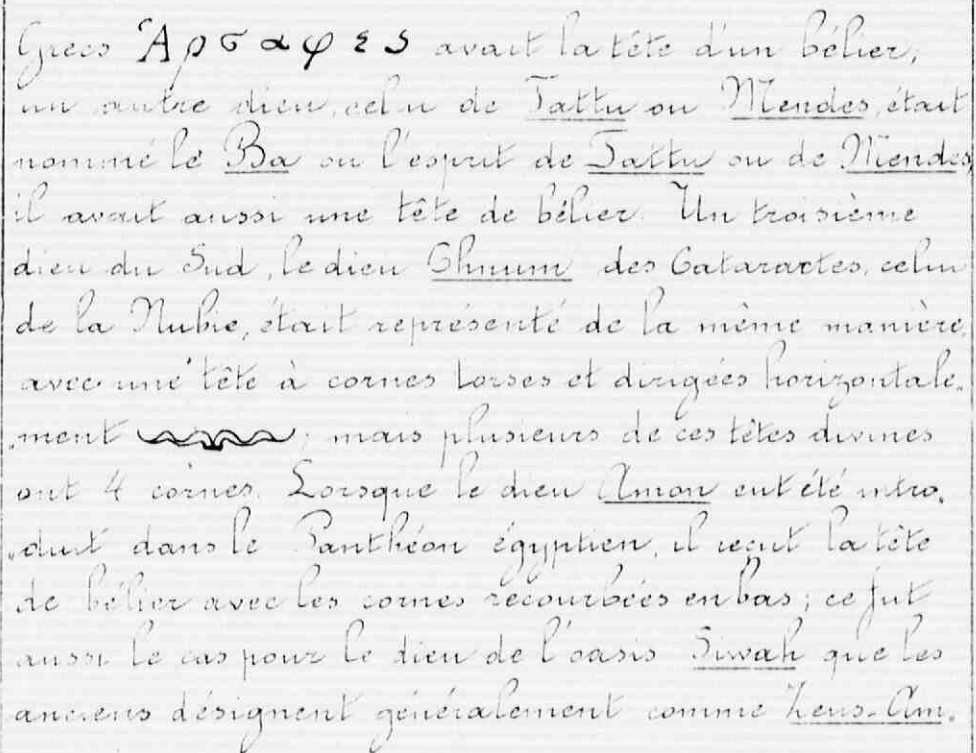 Grecs Ἀρσαφες avait la tête d'un bélier,
un autre dieu, celui de Tattu ou Mendes, était
nommé le Ba ou l'esprit de Tattu ou de Mendes,
il avait aussi une tête de bélier. Un troisième
dieu du Sud, le dieu Chnum des Cataractes, celui
de la Nubie, était représenté de la même manière,
avec une tête à cornes torses et dirigées horizontale„
„ment ; mais plusieurs de ces têtes divines
ont 4 cornes. Lorsque le dieu Amon eut été intro„
„duit dans le Panthéon égyptien, il reçut la tête
de bélier avec les cornes recourbées en bas ; ce fut
aussi le cas pour le dieu de l'oasis Siwah que les
anciens désignent généralement comme Zeus-Am„